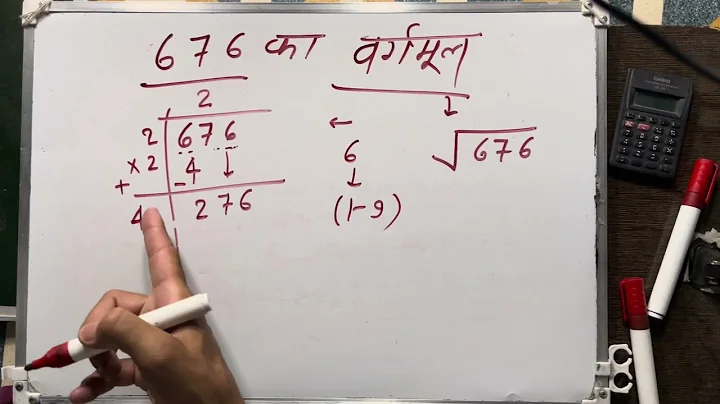 676 का वर्गमूल
2
2 676
×2 -4 ↓
+
4 276
←
6
↓
(1-9)
↓
√676
CASIO